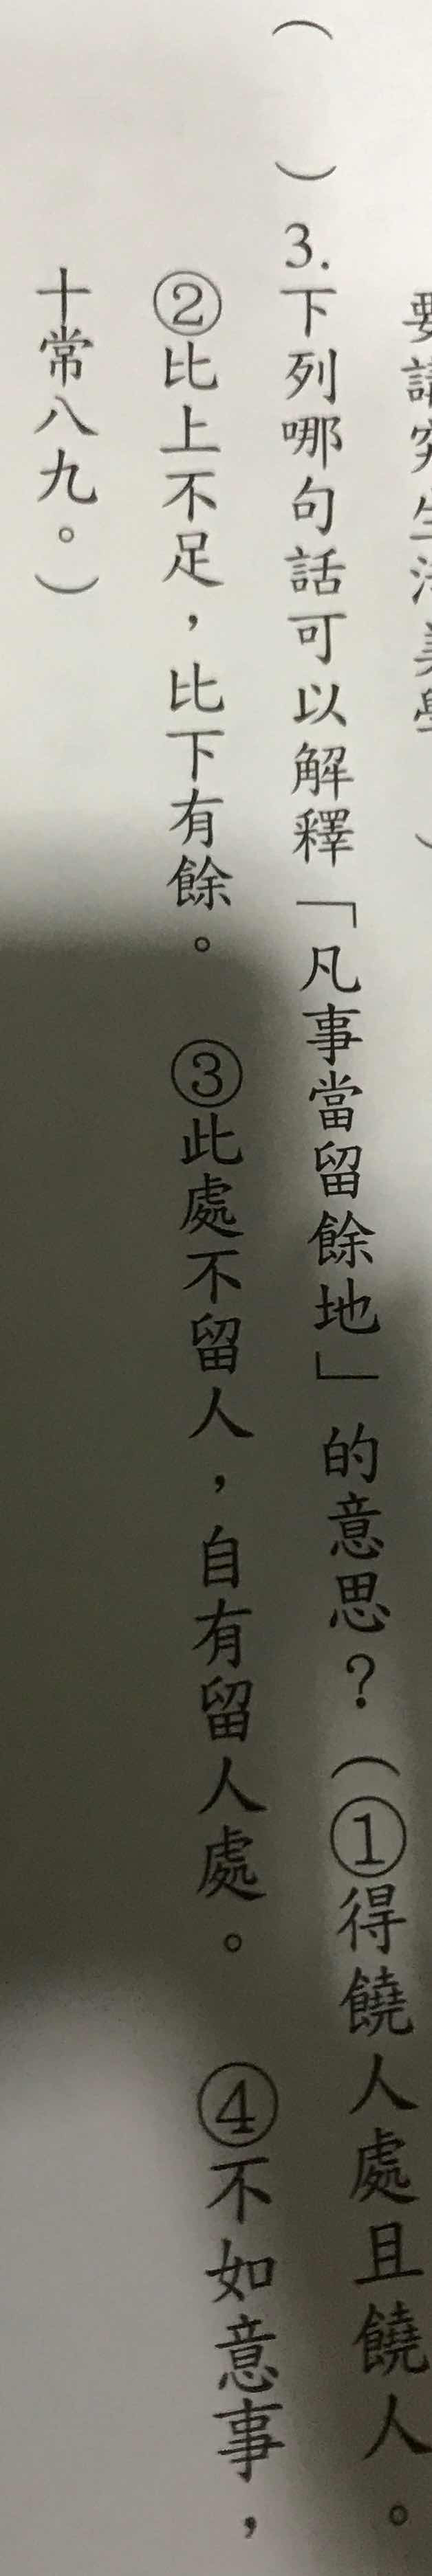 要講究生活美學）
（　　）3.下列哪句話可以解釋「凡事當留餘地」的意思？（①得饒人處且饒人。
②比上不足，比下有餘。　③此處不留人，自有留人處。　④不如意事，
十常八九。）